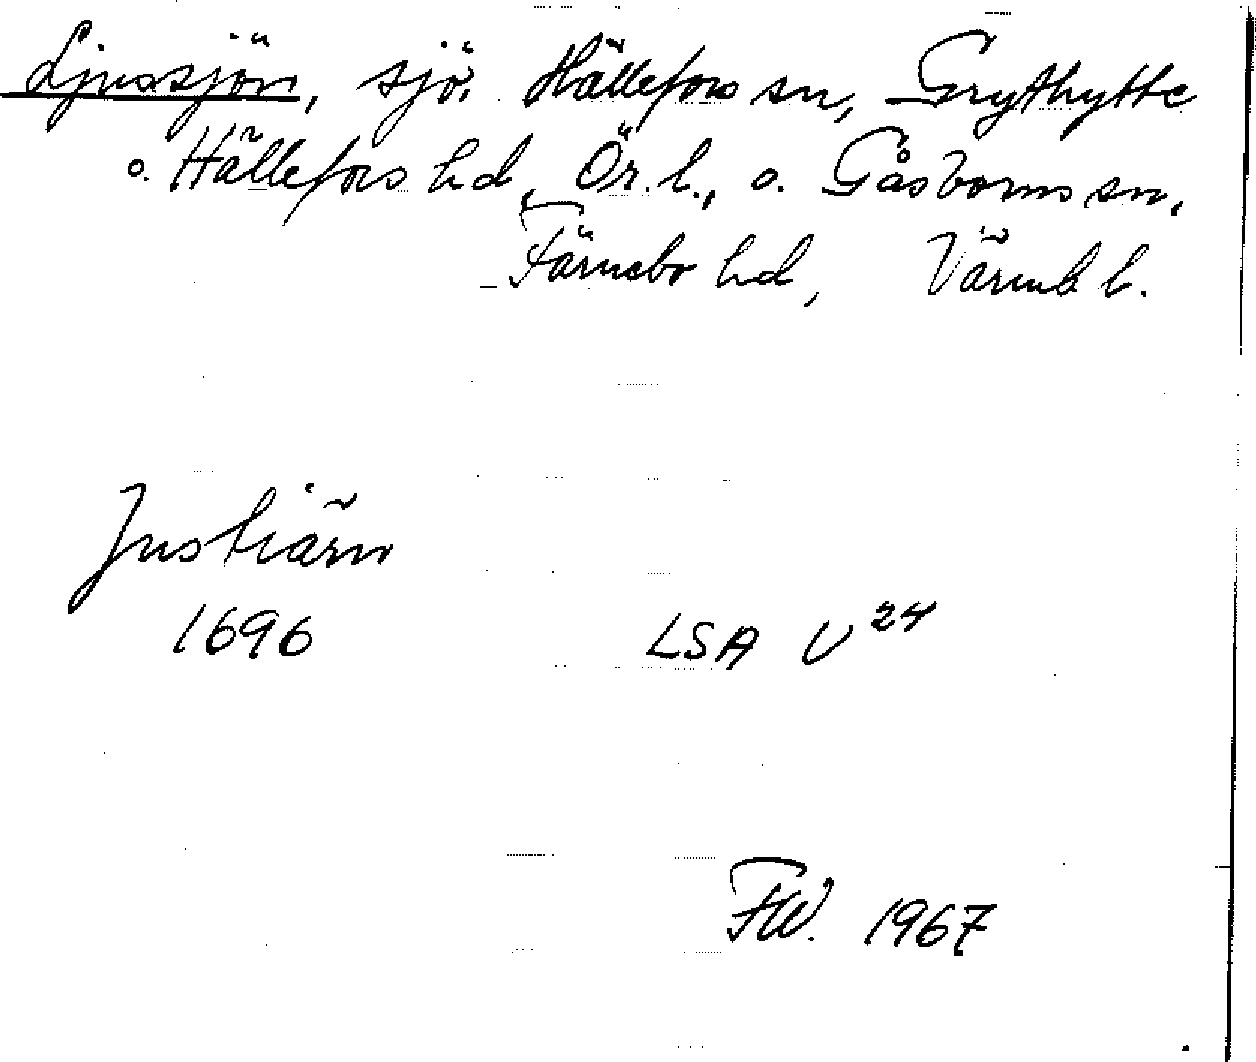 Ljussjön, sjö. Hällefors sn, Grythytte
o. Hällefors hd, Ör. l., o. Gåsborns sn,
Färnebo hd, Värml. l.
Justiärn
1696 LSA U 24
FW. 1967